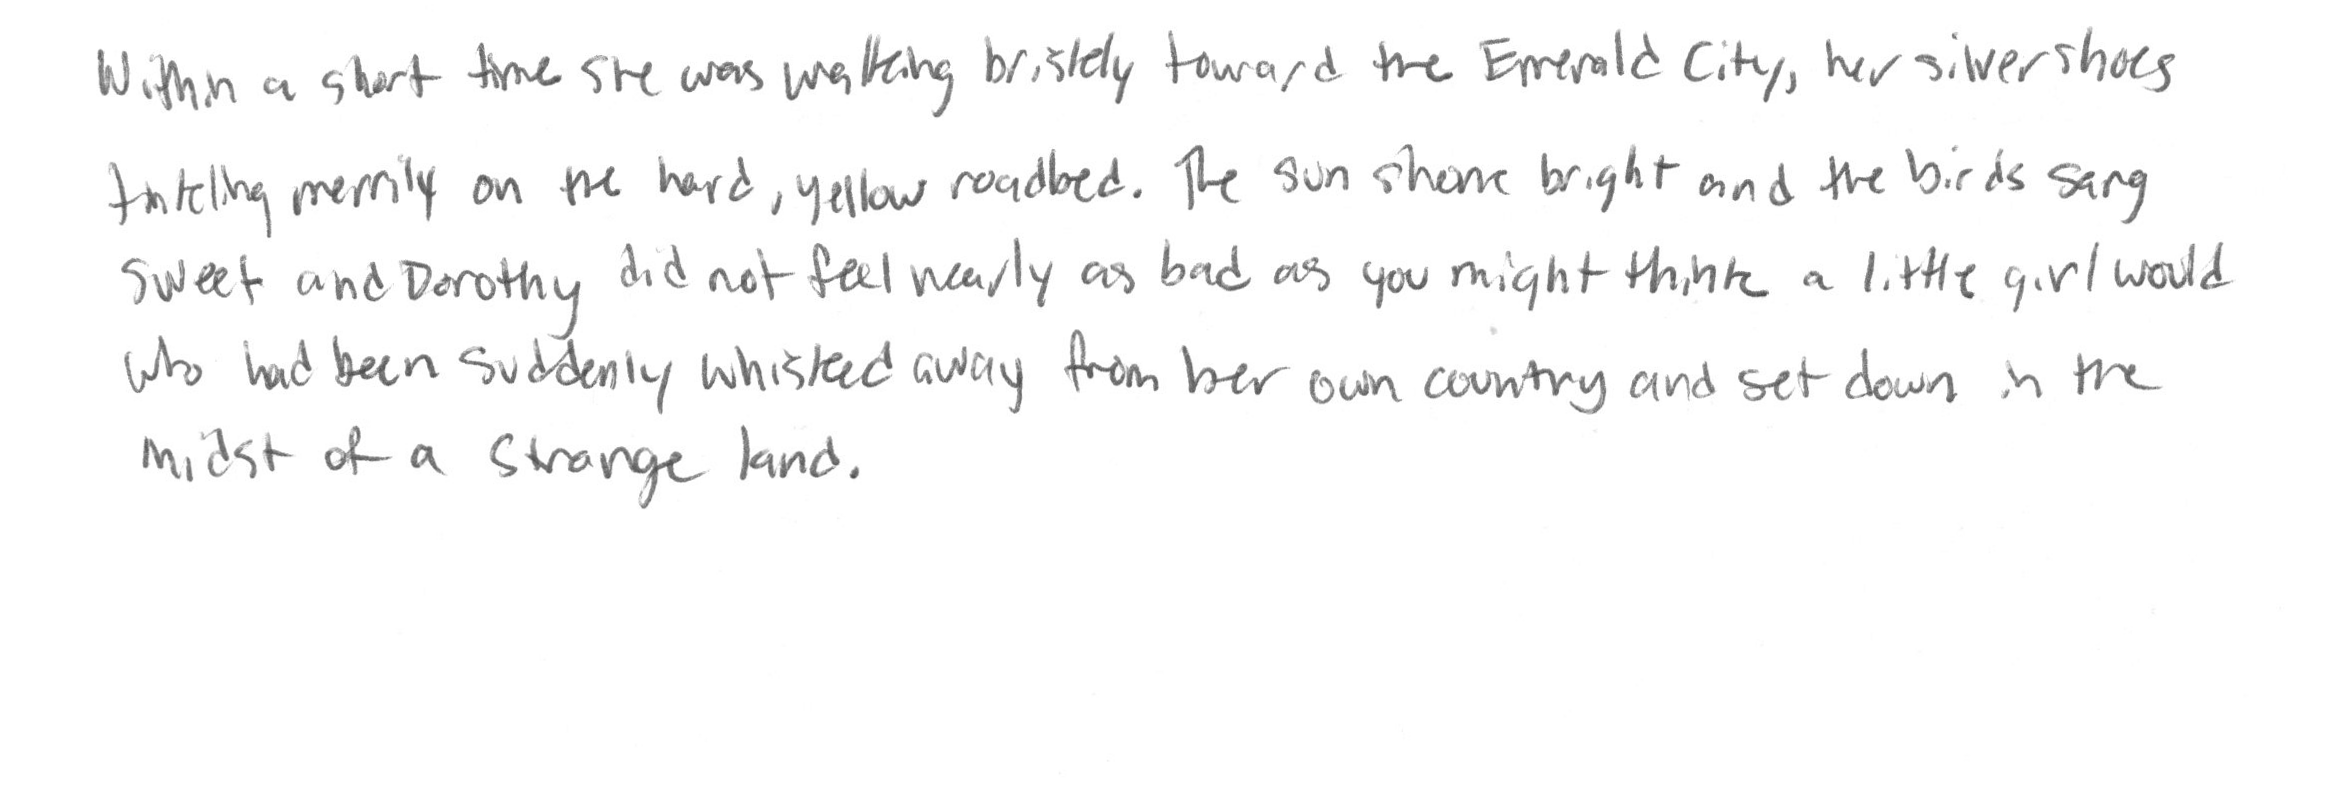 Within a short time she was walking briskly toward the Emerald City, her silver shoes
tinkling merrily on the hard, yellow roadbed. The sun shone bright and the birds sang
sweet and Dorothy did not feel nearly as bad as you might think a little girl would
who had been suddenly whisked away from her own country and set down in the
midst of a strange land.